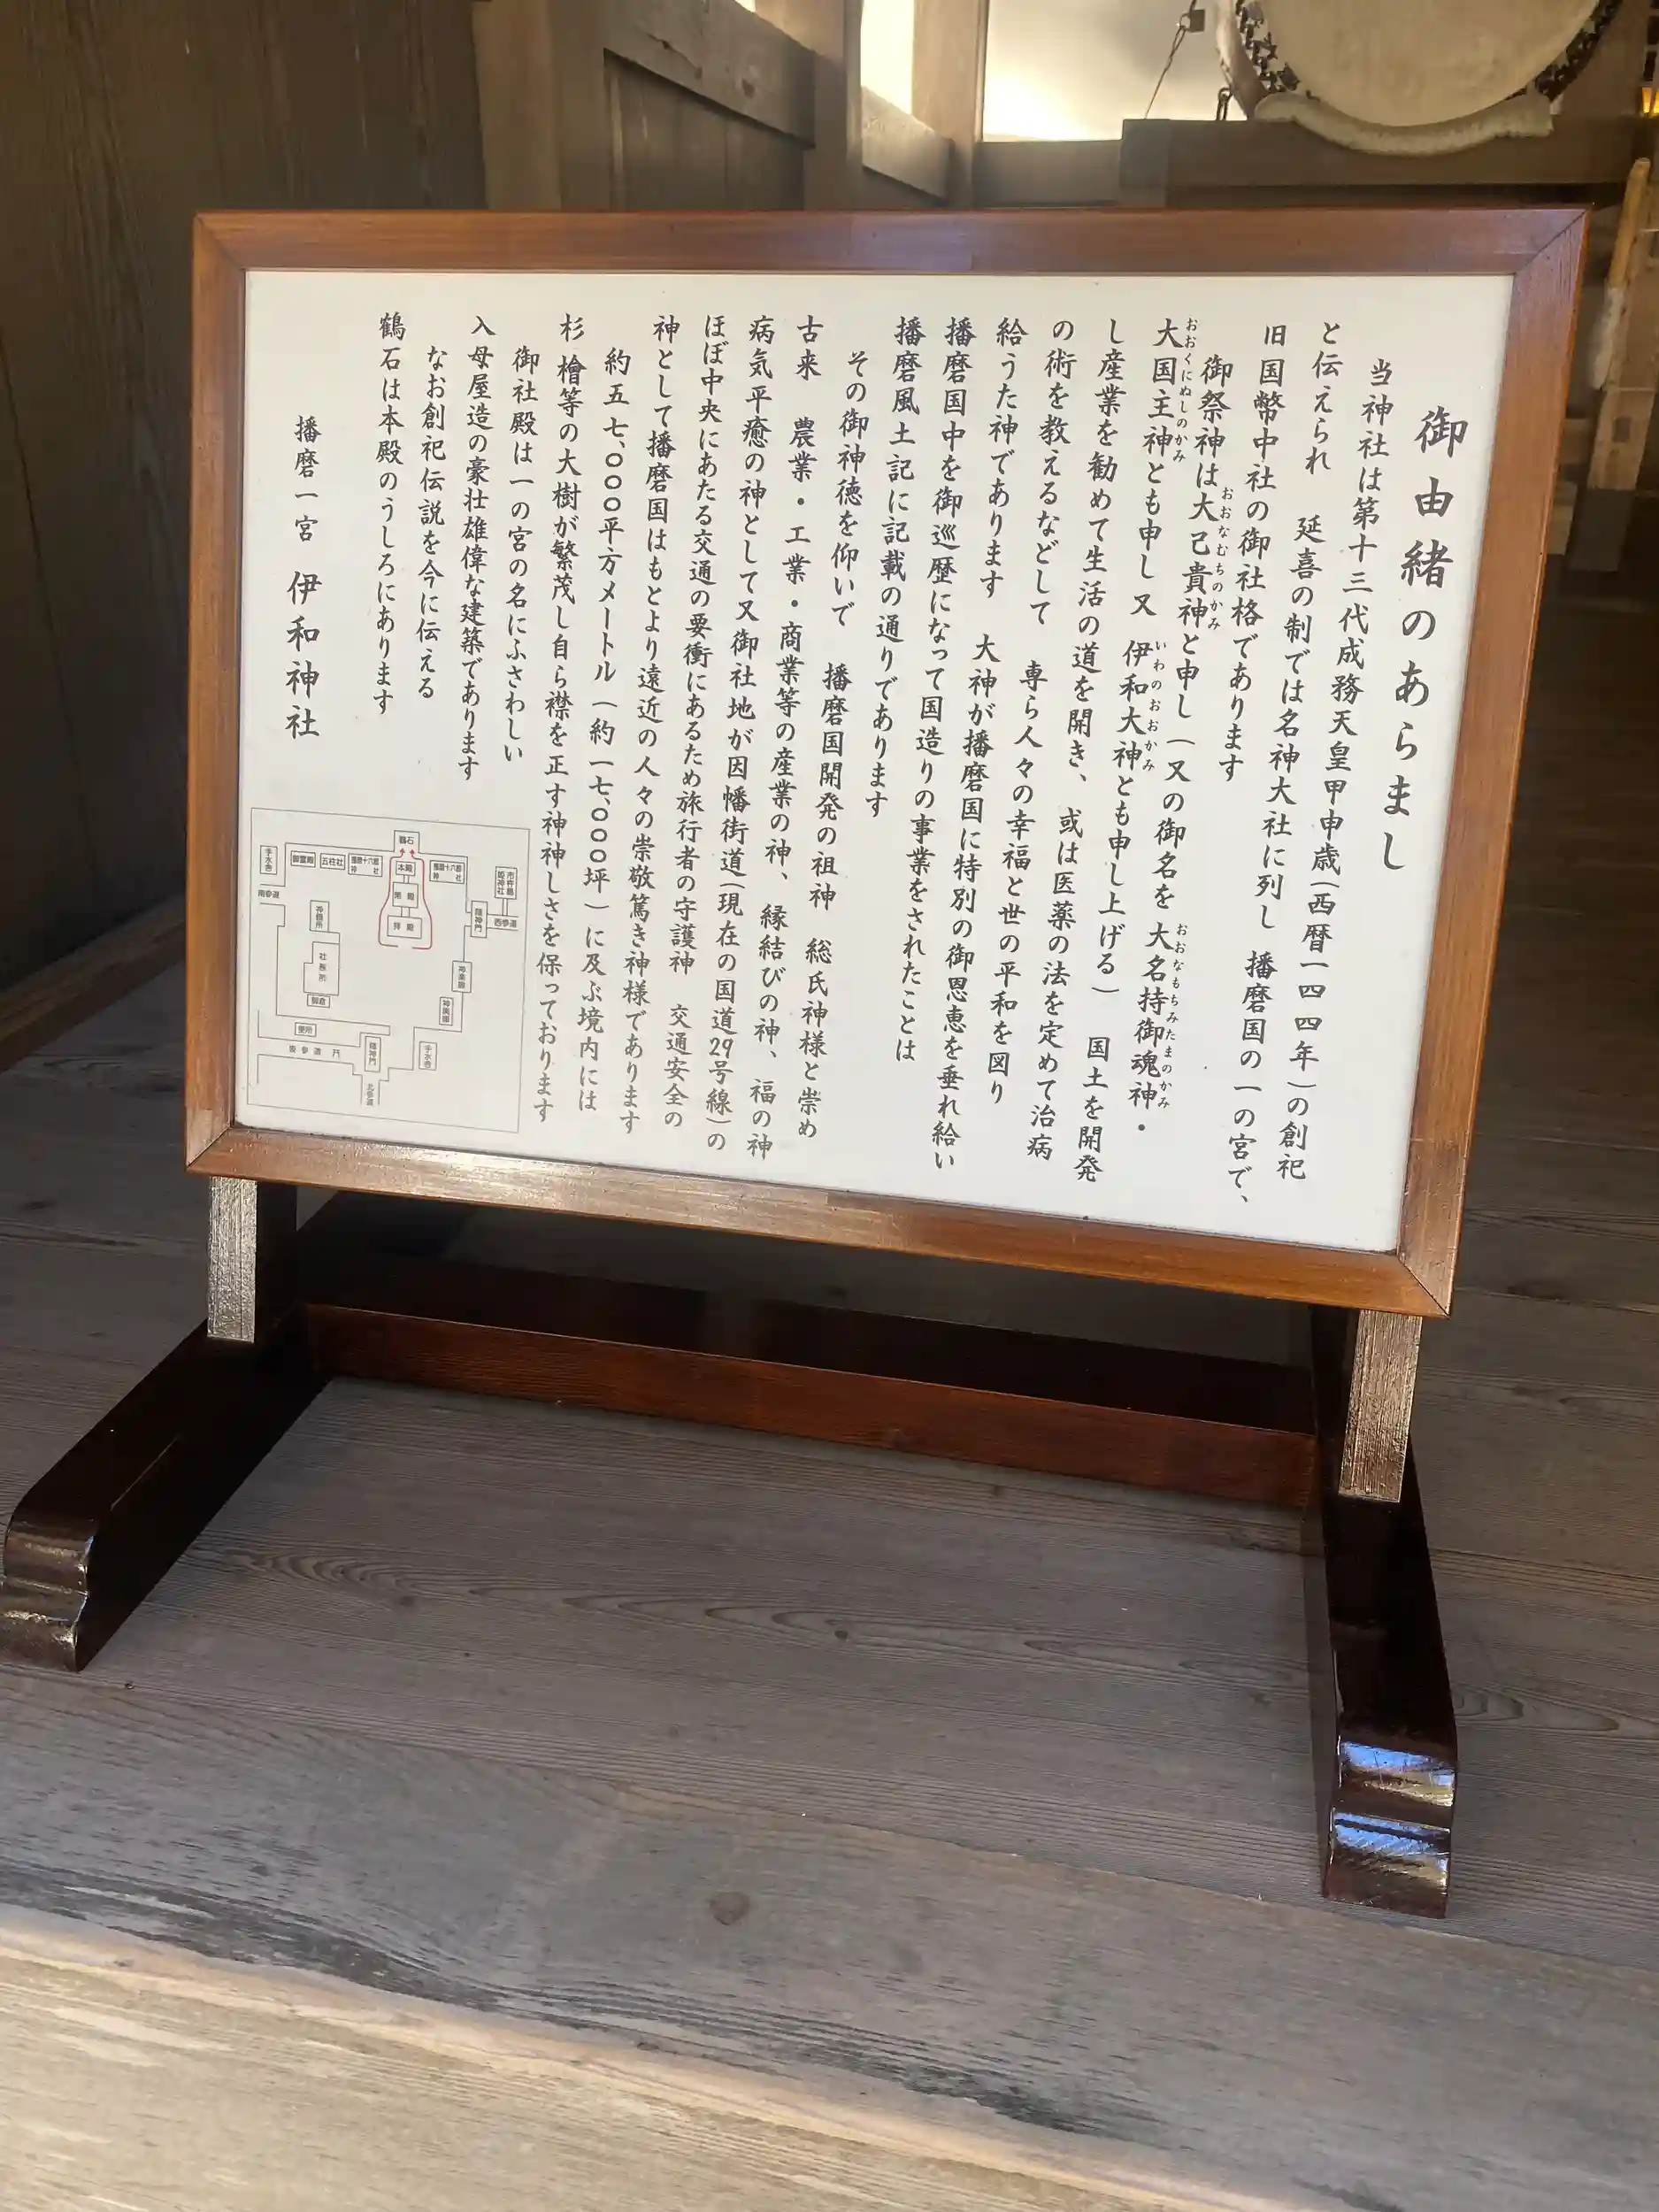 御由緒のあらまし
当神社は第十三代成務天皇甲申歳(西暦一四四年)の創祀
と伝えられ 延喜の制では名神大社に列し 播磨国の一の宮で、
旧国幣中社の御社格であります
御祭神は大己貴神と申し(又の御名を 大名持御魂神・
おおなむちのかみ
おおなもちみたまのかみ
大国主神とも申し又 伊和大神とも申し上げる) 国土を開発
おおくにぬしのかみ
いわのおおかみ
し産業を勧めて生活の道を開き、 或は医薬の法を定めて治病
の術を教えるなどして 専ら人々の幸福と世の平和を図り
給うた神であります 大神が播磨国に特別の御恩恵を垂れ給い
播磨国中を御巡歴になって国造りの事業をされたことは
播磨風土記に記載の通りであります
その御神徳を仰いで 播磨国開発の祖神 総氏神様と崇め
古来 農業・工業・商業等の産業の神、 縁結びの神、 福の神
病気平癒の神として又御社地が因幡街道(現在の国道29号線)の
ほぼ中央にあたる交通の要衝にあるため旅行者の守護神 交通安全の
神として播磨国はもとより遠近の人々の崇敬篤き神様であります
約五七、〇〇〇平方メートル(約一七、〇〇〇坪)に及ぶ境内には
杉 檜等の大樹が繁茂し自ら襟を正す神神しさを保っております
御社殿は一の宮の名にふさわしい
入母屋造の豪壮雄偉な建築であります
なお創祀伝説を今に伝える
鶴石は本殿のうしろにあります
播磨一宮 伊和神社
鶴石
本殿
幣殿
拝殿
播磨十六郡神社
播磨十六郡神社
五柱社
御霊殿
手水舎
南参道
市杵島姫神社
西参道
随神門
神楽殿
神饌所
社務所
御倉
便所
手水舎
随神門
北参道